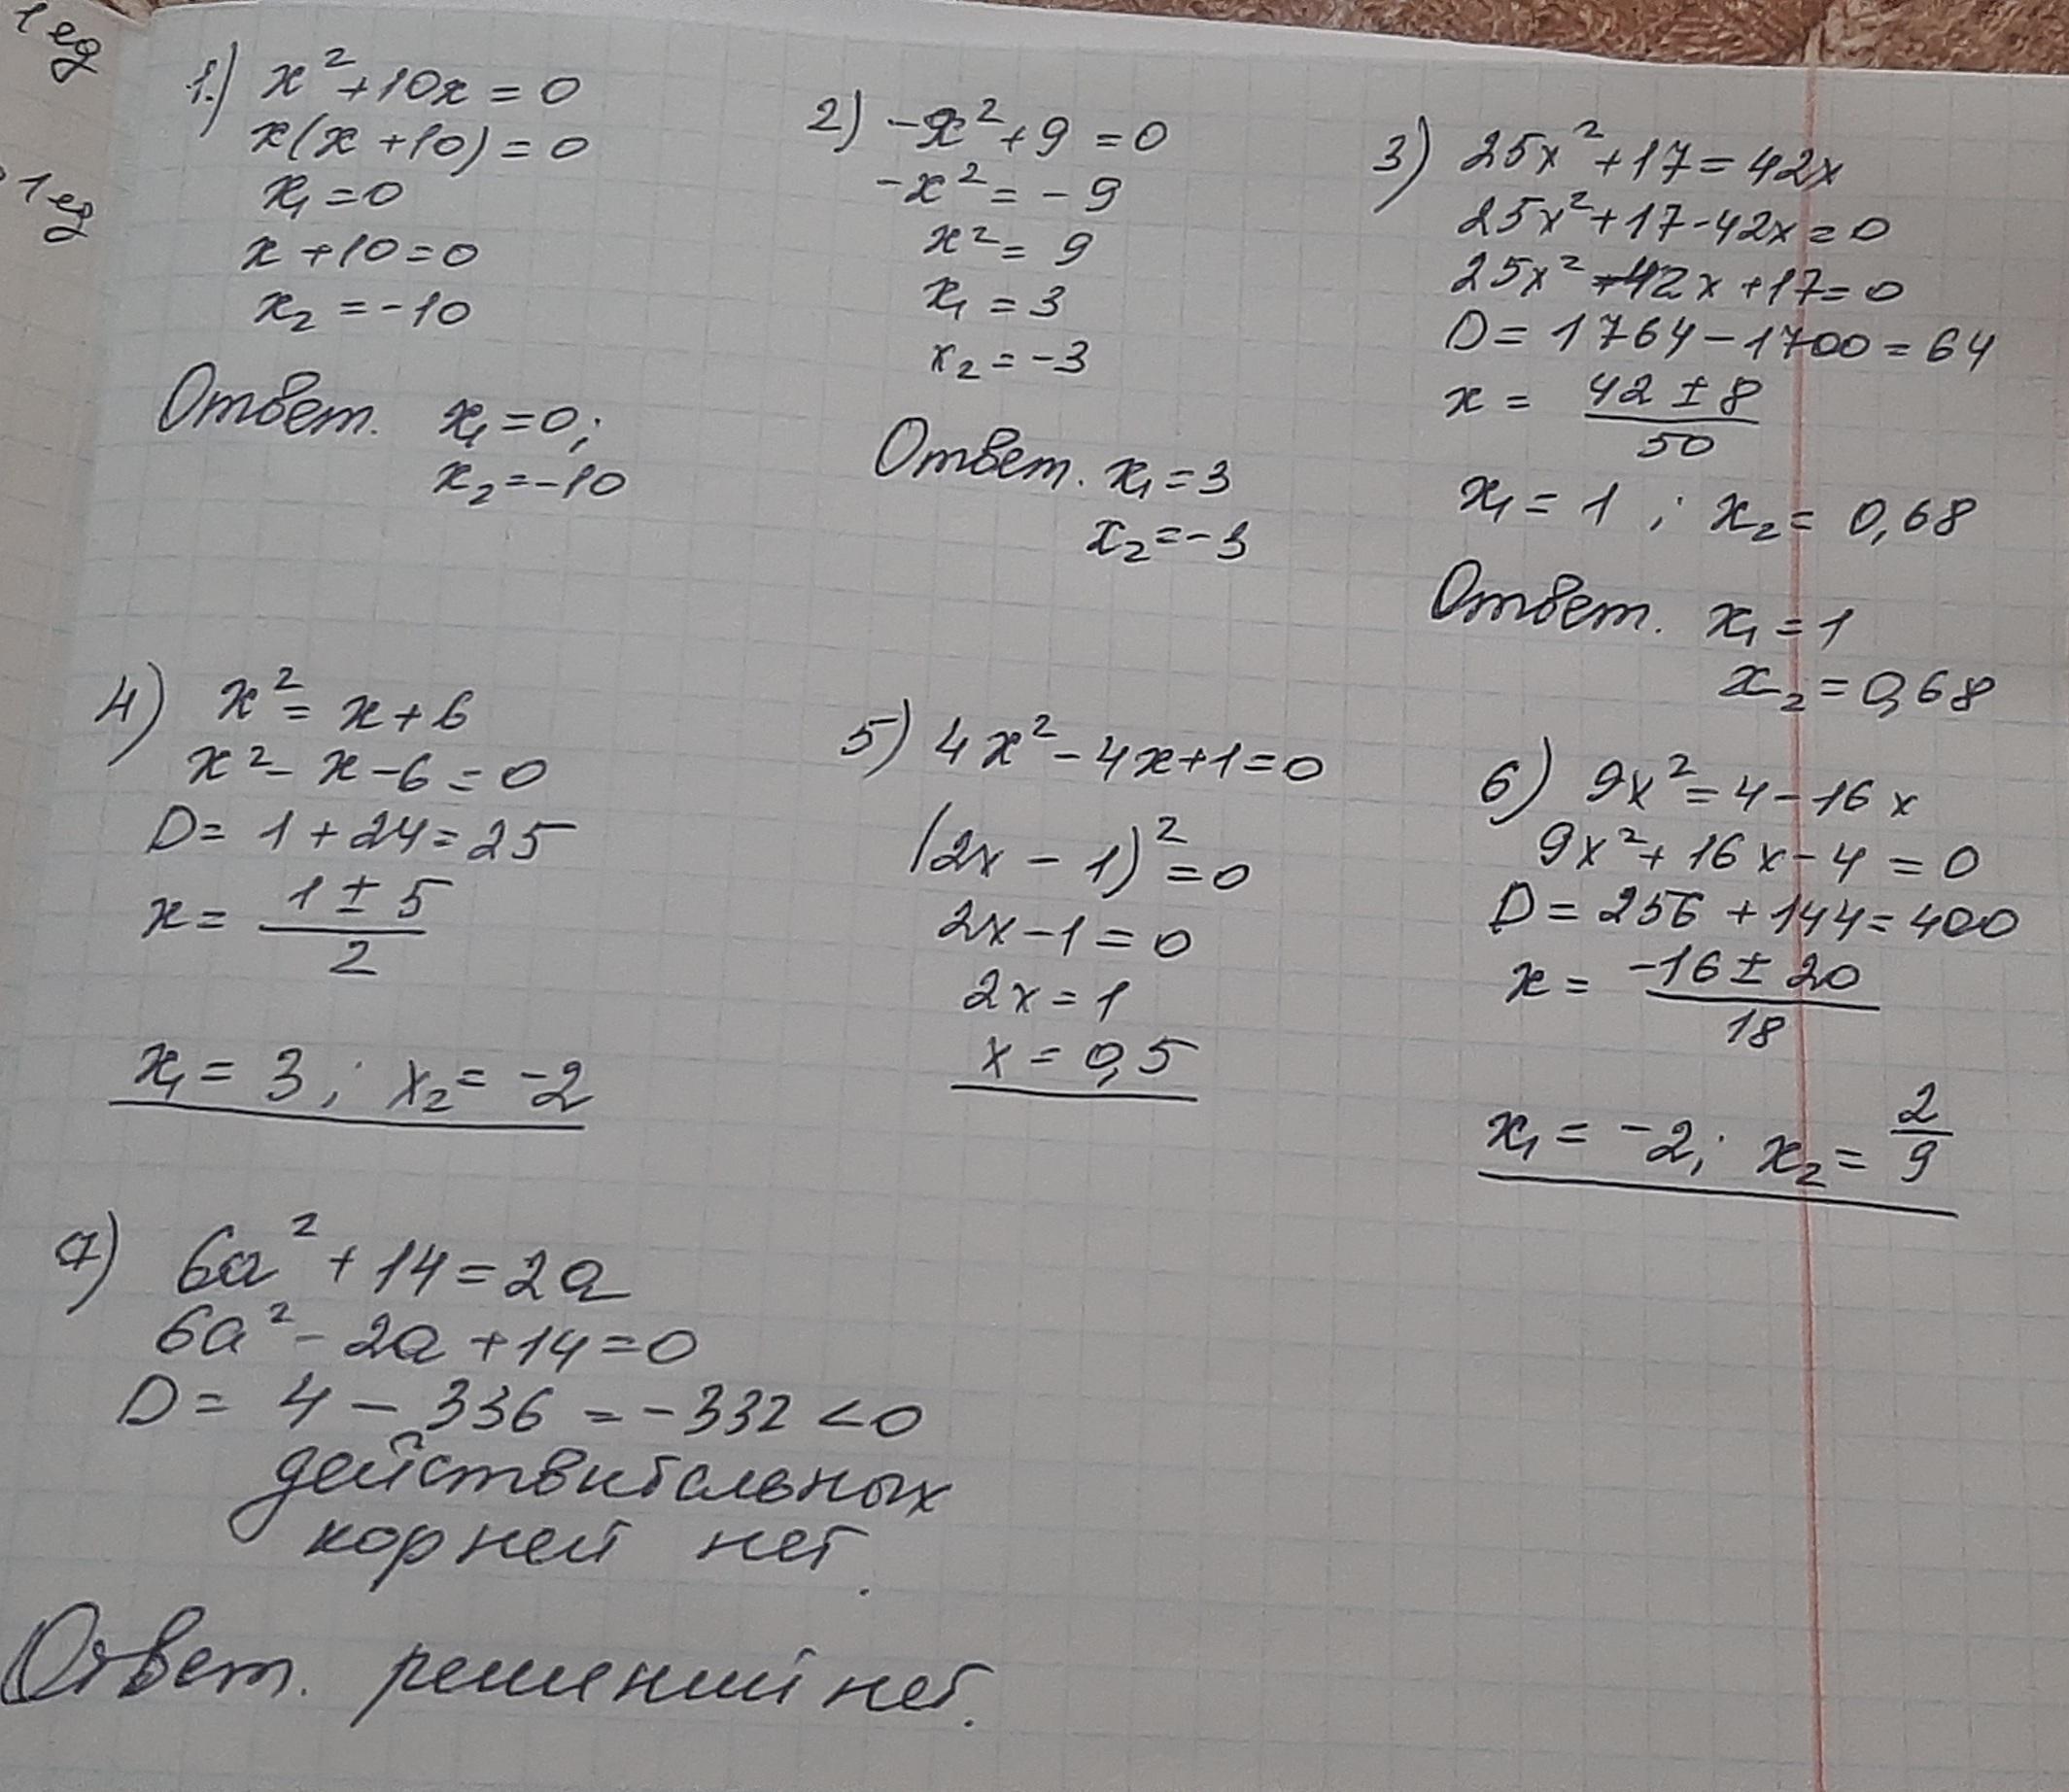 1 ед
1 ед
1.) x² + 10x = 0
x(x + 10) = 0
x₁ = 0
x + 10 = 0
x₂ = -10
Ответ. x₁ = 0;
x₂ = -10
2) -x² + 9 = 0
-x² = -9
x² = 9
x₁ = 3
x₂ = -3
Ответ. x₁ = 3
x₂ = -3
3) 25x² + 17 = 42x
25x² + 17 - 42x = 0
25x² - 42x + 17 = 0
D = 1764 - 1700 = 64
x = (42 ± 8)/50
x₁ = 1 ; x₂ = 0,68
Ответ. x₁ = 1
x₂ = 0,68
4) x² = x + 6
x² - x - 6 = 0
D = 1 + 24 = 25
x = (1 ± 5)/2
x₁ = 3 ; x₂ = -2
5) 4x² - 4x + 1 = 0
(2x - 1)² = 0
2x - 1 = 0
2x = 1
x = 0,5
6) 9x² = 4 - 16x
9x² + 16x - 4 = 0
D = 256 + 144 = 400
x = (-16 ± 20)/18
x₁ = -2; x₂ = 2/9
7) 6a² + 14 = 2a
6a² - 2a + 14 = 0
D = 4 - 336 = -332 < 0
действительных
корней нет.
Ответ. решений нет.